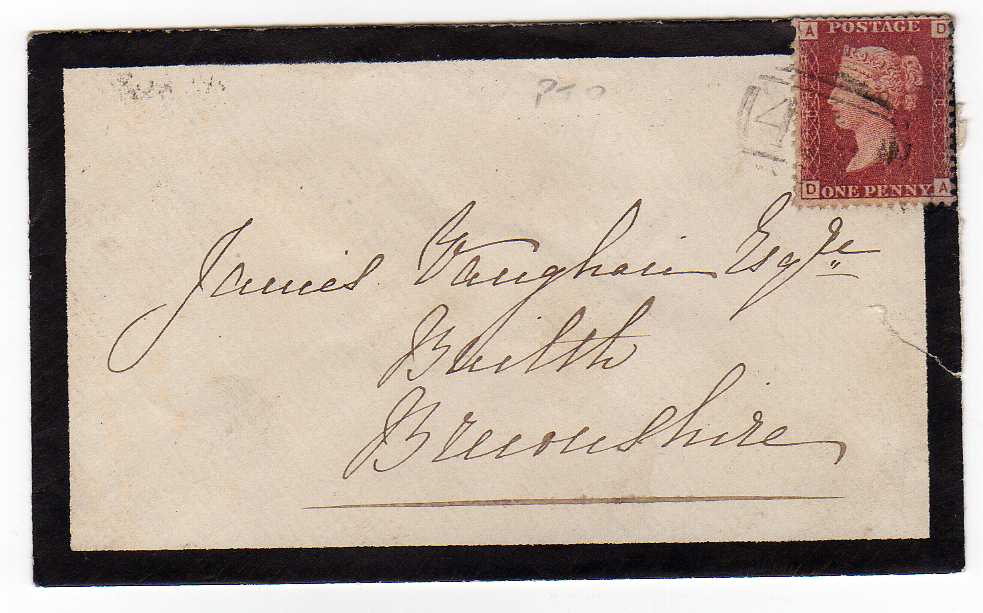 A POSTAGE D
PTO
4
D ONE PENNY A
James Vaughan Esqre
Builth
Breconshire